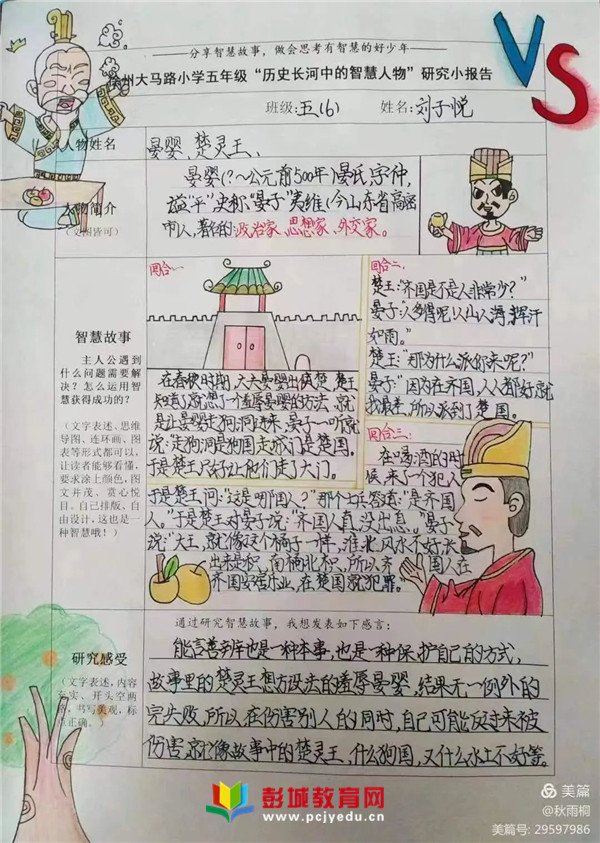 分享智慧故事，做会思考有智慧的好少年
州大马路小学五年级“历史长河中的智慧人物”研究小报告
班级：五(6) 姓名：刘子悦
VS
人物姓名
晏婴、楚灵王、
人物简介
（文图皆可）
晏婴(?～公元前500年)晏氏,字仲,
谥"平",史称"晏子"夷维(今山东省高密
市)人,著名的:政治家、思想家、外交家。
智慧故事
主人公遇到
什么问题需要解
决？怎么运用智
慧获得成功的？
（文字表述、思维
导图、连环画、图
表等形式都可以，
让读者能够看懂，
要求涂上颜色，图
文并茂、赏心悦
目。自己排版、自
由设计，这也是一
种智慧哦！）
回合一、
在春秋时期,大夫晏婴出使楚,楚王
知道了,就想了一个羞辱晏婴的方法,就
是让晏婴走狗洞进来,晏子一听就
说:"走狗洞是狗国走城门是楚国。
于是楚王只好让他们走了大门。
回合二、
楚王:"齐国是不是人非常少?"
晏子:"人多得呢,以山人海,挥汗
如雨。"
楚王:"那为什么派你来呢?"
晏子:"因为在齐国,人人都好,就
我最差,所以派到了楚国。
回合三:
在喝酒的时
候,来了一个犯人
于是楚王问:"这是哪国人?"那个士兵答道:"是齐国
人。"于是楚王对晏子说:"齐国人真没出息。"晏子
说:"大王,就像这个橘子一样,淮北风水不好,长
出来是枳,南橘北枳,所以齐国人在
齐国安居乐业,在楚国就犯罪。"
研究感受
（文字表述，内容
充实、开头空两
格，书写美观，标
点正确。）
通过研究智慧故事，我想发表如下感言：
能言善辩也是一种本事,也是一种保护自己的方式,
故事里的楚灵王想方设法的羞辱晏婴,结果无一例外的
完失败,所以在伤害别人的同时,自己可能反过来被
伤害,就像故事中的楚灵王,什么狗国,又什么水土不好等。
彭城教育网
www.pcjyedu.cn
美篇
@秋雨桐
美篇号: 29597986